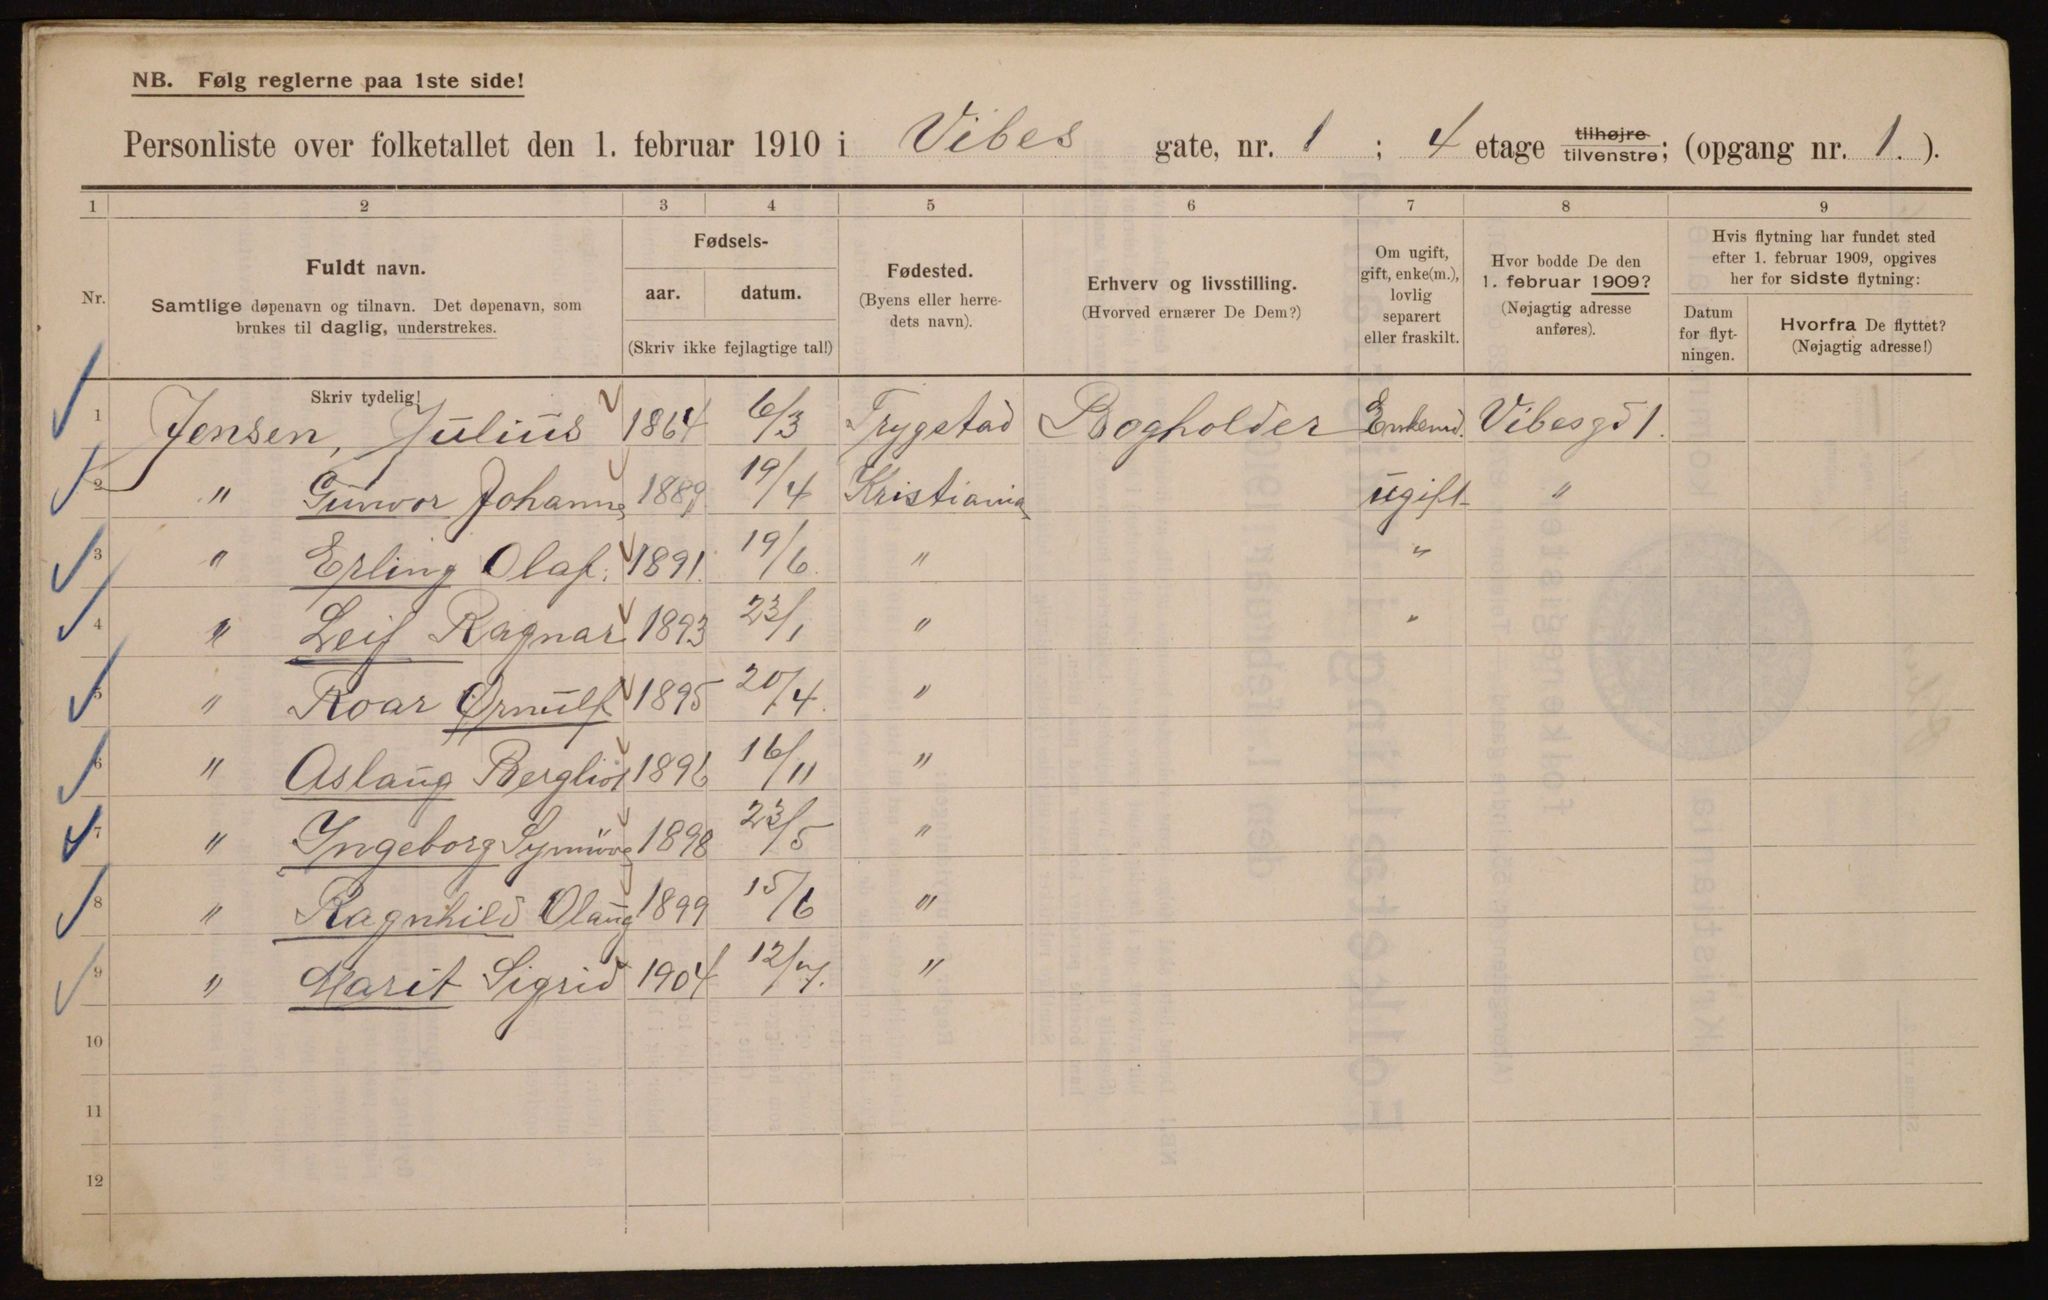 NB. Følg reglerne paa 1ste side!
Personliste over folketallet den 1. februar 1910 i Vibes gate, nr. 1 ; 4 etage tilhøjre tilvenstre; (opgang nr. 1. ).
1 2 3 4 5 6 7 8 9
Nr.
Fuldt navn.
Samtlige døpenavn og tilnavn. Det døpenavn, som
brukes til daglig, understrekes.
Fødsels-
aar. datum.
(Skriv ikke fejlagtige tal!)
Fødested.
(Byens eller herre-
dets navn).
Erhverv og livsstilling.
(Hvorved ernærer De Dem?)
Om ugift,
gift, enke(m.),
lovlig
separert
eller fraskilt.
Hvor bodde De den
1. februar 1909?
(Nøjagtig adresse
anføres).
Hvis flytning har fundet sted
efter 1. februar 1909, opgives
her for sidste flytning:
Datum
for flyt-
ningen.
Hvorfra De flyttet?
(Nøjagtig adresse!)
Skriv tydelig!
1 Jensen, Julius 1864 6/3 Trygstad Bogholder Enkemd. Vibesgd 1.
2 " Gunvor Johanne 1889 19/4 Kristiania ugift "
3 " Erling Olaf. 1891. 19/6. " "
4 " Leif Ragnar 1893 23/1 " "
5 " Roar Ørnulf 1895 20/4. "
6 " Aslaug Bergliot 1896 16/11 "
7 " Ingeborg Synnöve 1898 23/5 "
8 " Ragnhild Olaug 1899 15/6 "
9 " Marit Sigrid 1904 12/7. "
10
11
12